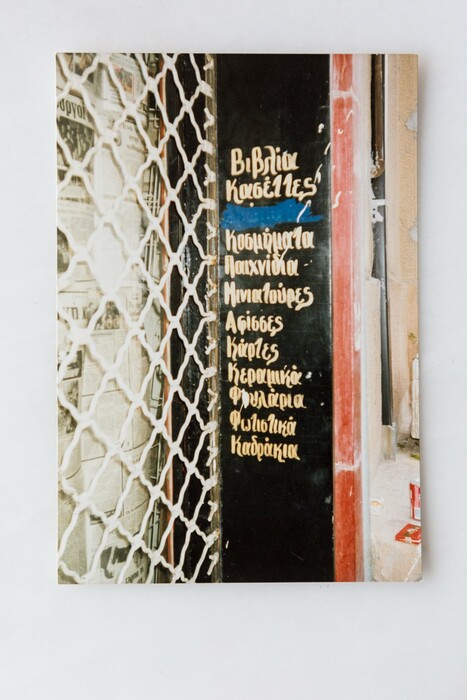 Βιβλία
Κασέττες
Κοσμήματα
Παιχνίδια
Μινιατούρες
Αφίσσες
Κάρτες
Κεραμικά
Φουλάρια
Φωτιστικά
Καδράκια